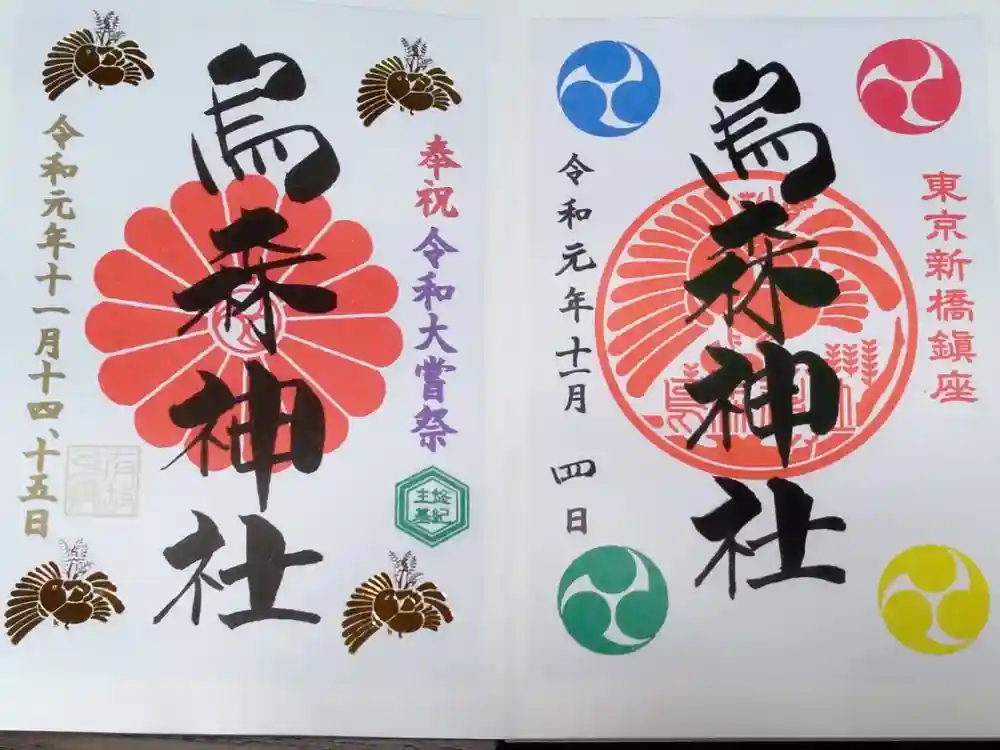 奉祝 令和大嘗祭
悠紀
主基
烏森神社
令和元年十一月十四、十五日
東京新橋鎮座
烏森神社
令和元年十一月 四日